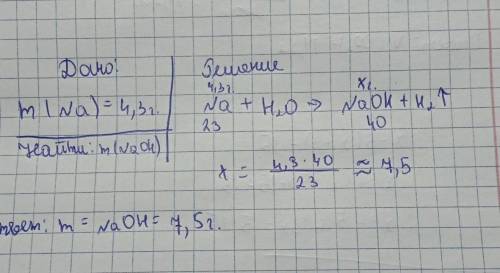 Дано:
m(Na) = 4,3г.
Найти: m(NaOH)
Решение
4,3г. xг.
Na + H₂O → NaOH + H₂↑
23 40
x = 4,3 · 40 / 23 ≈ 7,5
твет: m = NaOH = 7,5г.